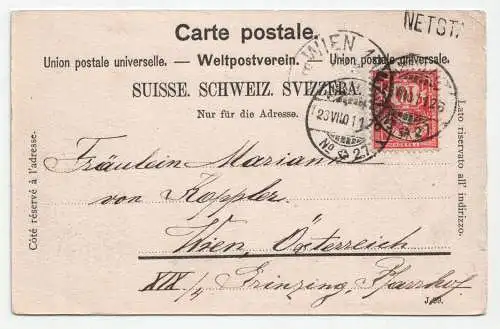 Carte postale.
NETST
Union postale universelle. — Weltpostverein. — Union postale universale.
WIEN 1
SUISSE. SCHWEIZ. SVIZZERA.
Nur für die Adresse.
23 VII 01
No 27
Côté réservé à l'adresse.
Lato riservato all' indirizzo.
Fräulein Mariann
von Koppler
Wien, Österreich
XIX/4 Grinzing, Pfarrhof.